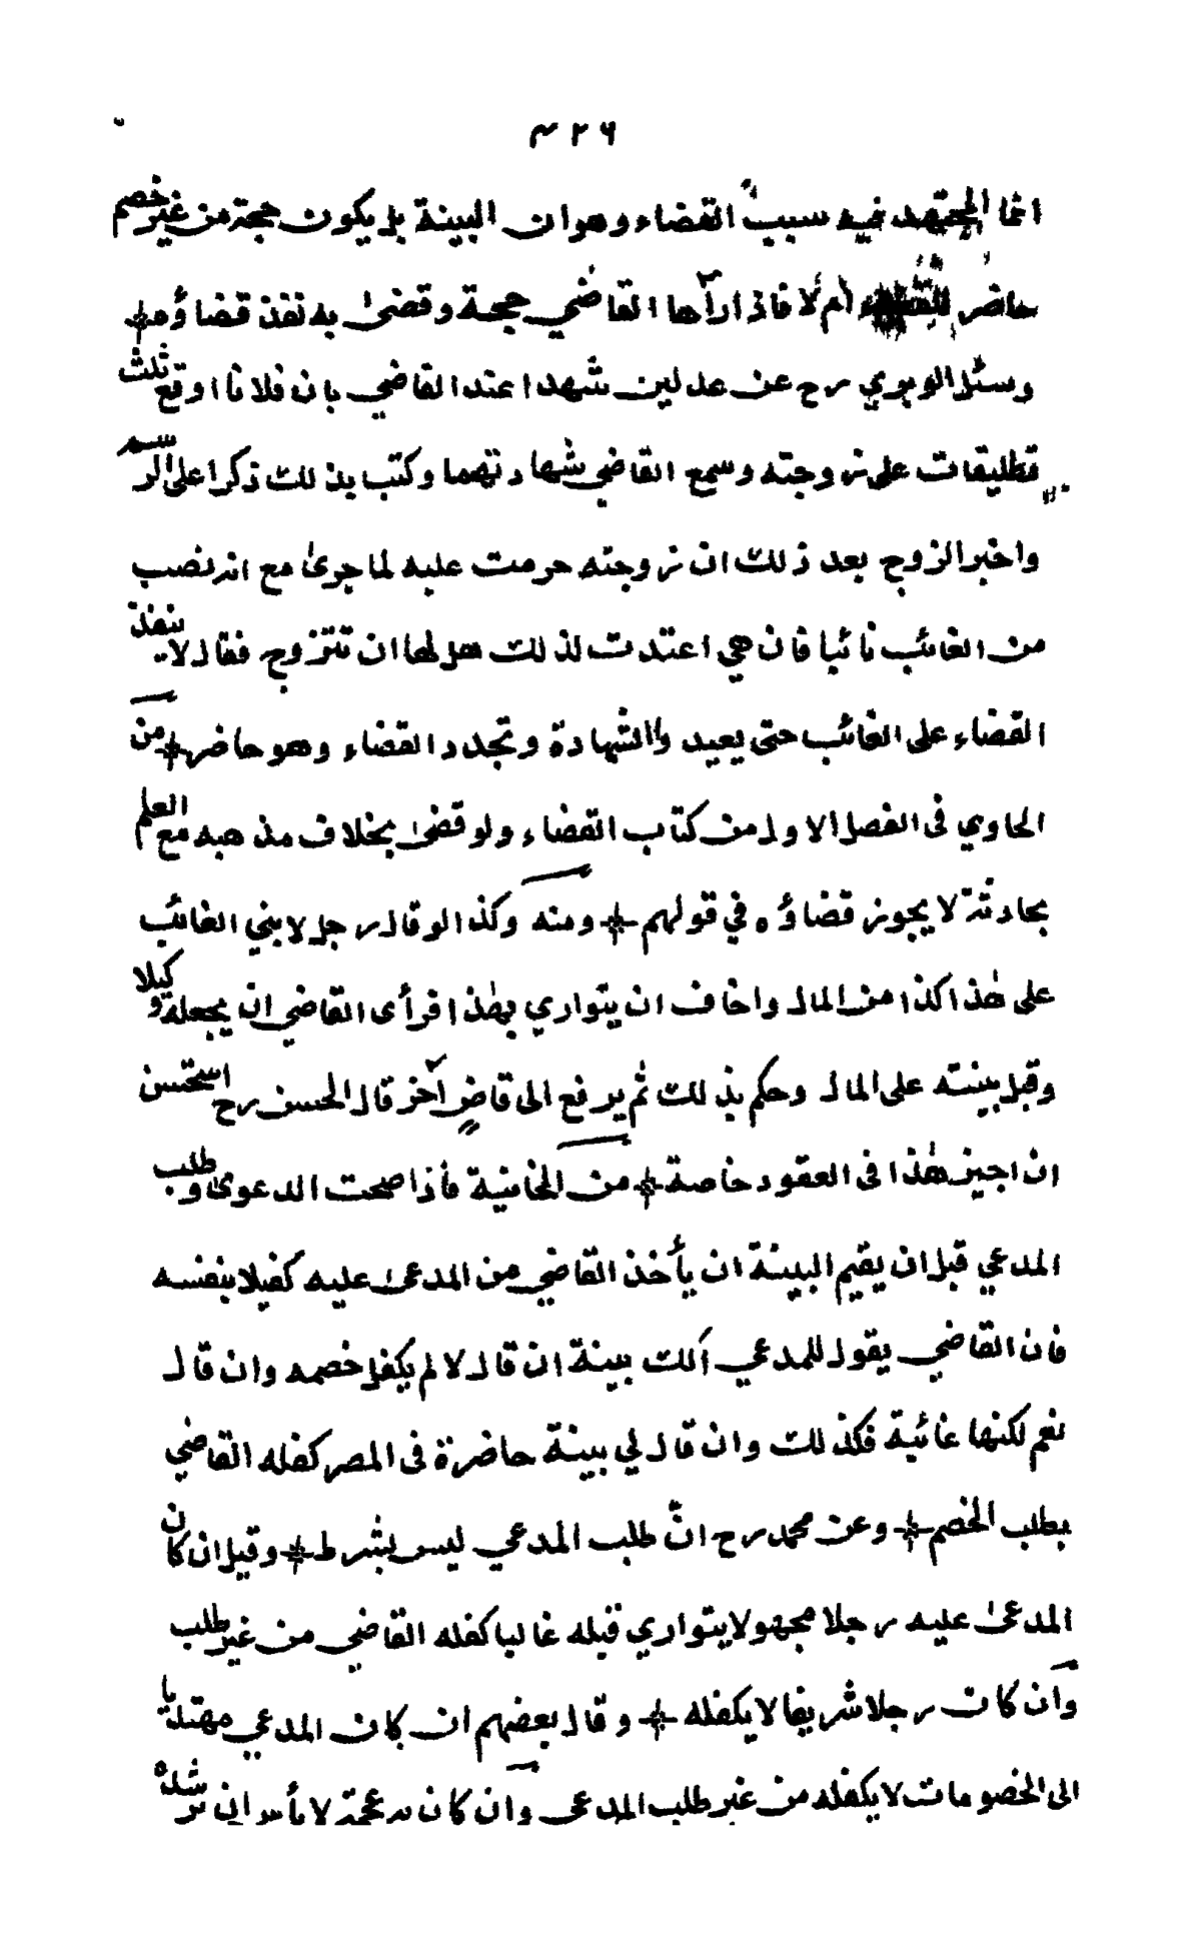 ٤٢٦
انما المجتهد فيه سبب القضاء وهوان البينة بل يكون حجة من غير خصم
حاضر ام لا فاذا رآها القاضي حجة وقضى به نفذ قضاؤه
وسئل الوبري رح عن عدلين شهدا عند القاضي بان فلانا اوقع ثلث
تطليقات على زوجته وسمع القاضي شهادتهما وكتب بذلك ذكرا على الرسم
واخبر الزوج بعد ذلك ان زوجته حرمت عليه لما جرى مع انه نصب
من الغائب نائبا فان هي اعتدت لذلك هل لها ان تتزوج فقال لا ينفذ
القضاء على الغائب حتى يعيد والشهادة وتجدد القضاء وهو حاضر من
الحاوي فى الفصل الاول من كتاب القضاء ولو قضى بخلاف مذهبه مع العلم
بحادثة لا يجوز قضاؤه في قولهم ومنه وكذا لو قال رجل لابني الغائب
على هذا كذا من المال واخاف ان يتواري بهذا فرأى القاضي ان يجعله وكيلا
وقبل بينته على المال وحكم بذلك ثم يرفع الى قاضٍ آخر قال الحسن رح استحسن
ان اجيز هذا فى العقود خاصة من الخانية فأذا صحت الدعوى وطلب
المدعي قبل ان يقيم البينة ان يأخذ القاضي من المدعى عليه كفيلا بنفسه
فان القاضي يقول للمدعي ألك بينة ان قال لا لم يكفل خصمه وان قال
نعم لكنها غائبة فكذلك وان قال لي بينة حاضرة فى المصر كفله القاضي
بطلب الخصم وعن محمد رح انّ طلب المدعي ليس بشرط وقيل ان كان
المدعى عليه رجلا مجهولا يتواري قبله غالبا كفله القاضي من غير طلب
وان كان رجلا شريفا لا يكفله وقال بعضهم ان كان المدعي مهتديا
الى الخصومات لا يكفله من غير طلب المدعى وان كان به عجمة لا بأس ان يرشده